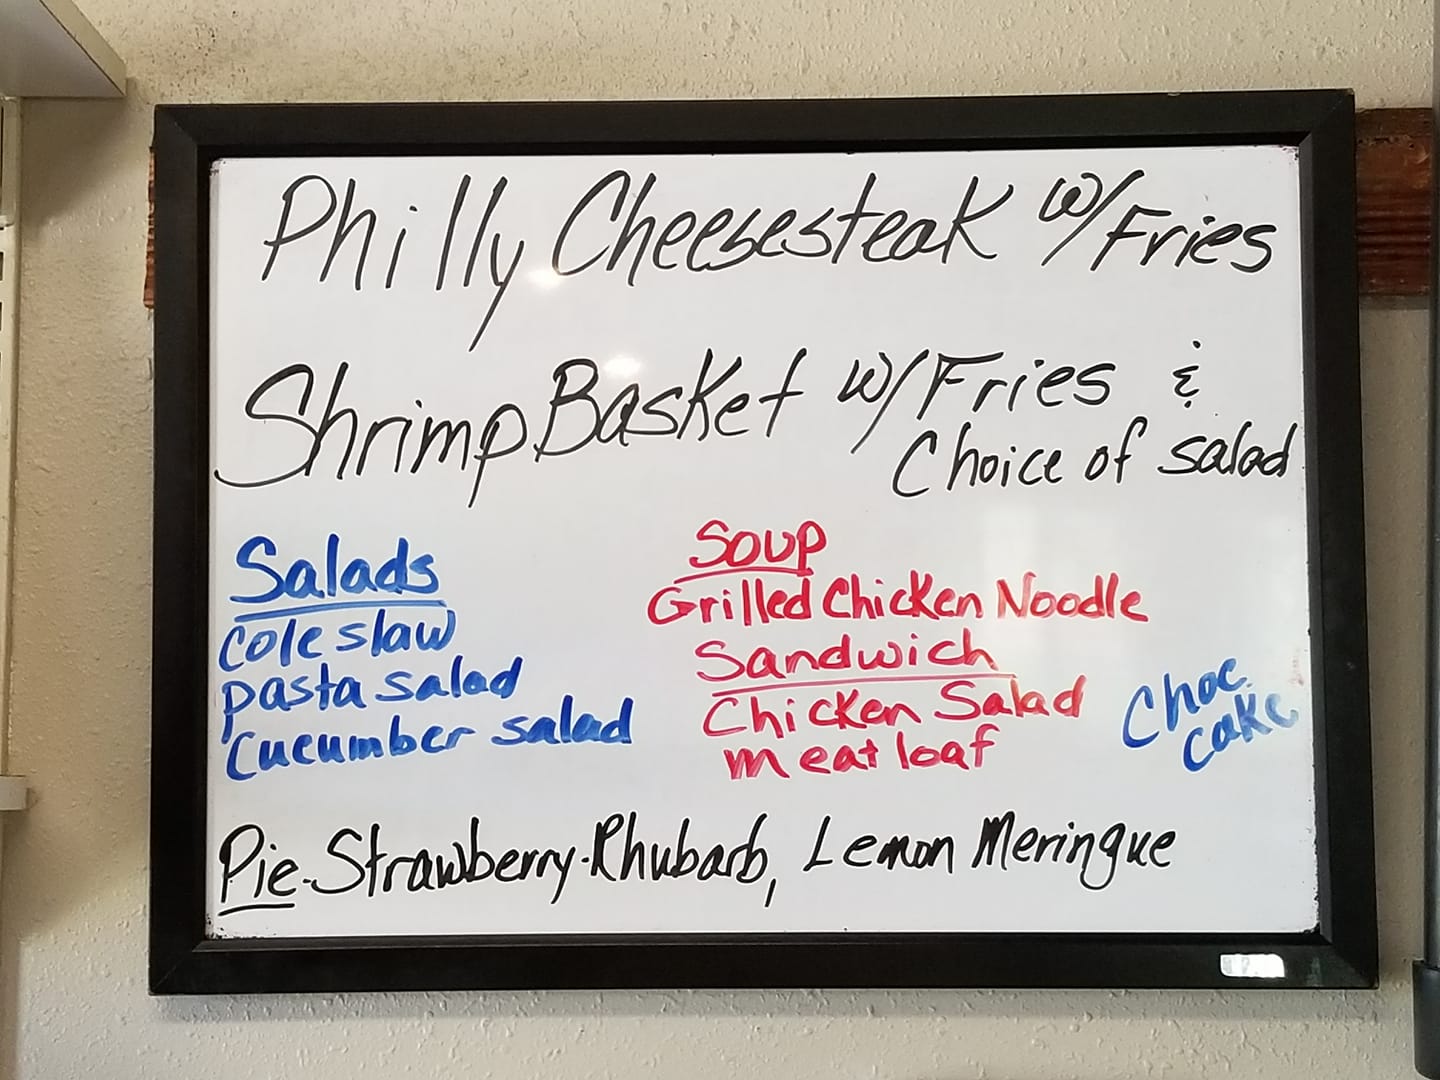 Philly Cheesesteak w/Fries
Shrimp Basket w/Fries &
Choice of salad
Salads
Coleslaw
pasta salad
Cucumber salad
Soup
Grilled Chicken Noodle
Sandwich
Chicken Salad
meatloaf
Choc.
cake
Pie-Strawberry-Rhubarb, Lemon Meringue